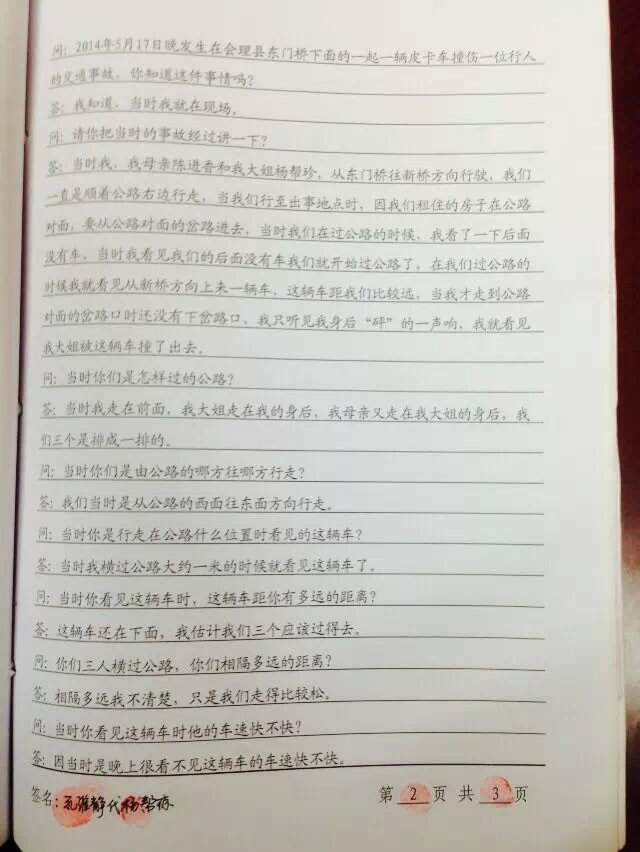 问: 2014年5月17日晚发生在会理县东门桥下面的一起一辆皮卡车撞伤一位行人
的交通事故，你知道这件事情吗?
答: 我知道，当时我就在现场。
问: 请你把当时的事故经过讲一下?
答: 当时我、我母亲陈进香和我大姐杨帮珍，从东门桥往新桥方向行驶，我们
一直是顺着公路右边行走，当我们行至出事地点时，因我们租住的房子在公路
对面，要从公路对面的岔路进去，当时我们在过公路的时候，我看了一下后面
没有车，当时我看见我们的后面没有车我们就开始过公路了，在我们过公路的
时候我就看见从新桥方向上来一辆车，这辆车距我们比较远，当我才走到公路
对面的岔路口时还没有下岔路口，我只听见我身后“砰”的一声响，我就看见
我大姐被这辆车撞了出去。
问: 当时你们是怎样过的公路?
答: 当时我走在前面，我大姐走在我的身后，我母亲又走在我大姐的身后，我
们三个是排成一排的。
问: 当时你们是由公路的哪方往哪方行走?
答: 我们当时是从公路的西面往东面方向行走。
问: 当时你是行走在公路什么位置时看见的这辆车?
答: 当时我横过公路大约一米的时候就看见这辆车了。
问: 当时你看见这辆车时，这辆车距你有多远的距离?
答: 这辆车还在下面，我估计我们三个应该过得去。
问: 你们三人横过公路，你们相隔多远的距离?
答: 相隔多远我不清楚，只是我们走得比较松。
问: 当时你看见这辆车时他的车速快不快?
答: 因当时是晚上很看不见这辆车的车速快不快。
签名: 代杨帮
第 2 页 共 3 页